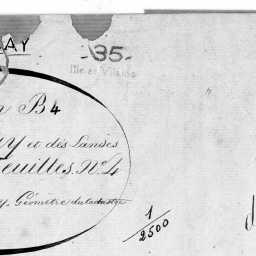 AY
-35-
Ille et Vilaine
B4
Y et des Landes
euilles. N.º 4
Géomètre du cadastre
1/2500